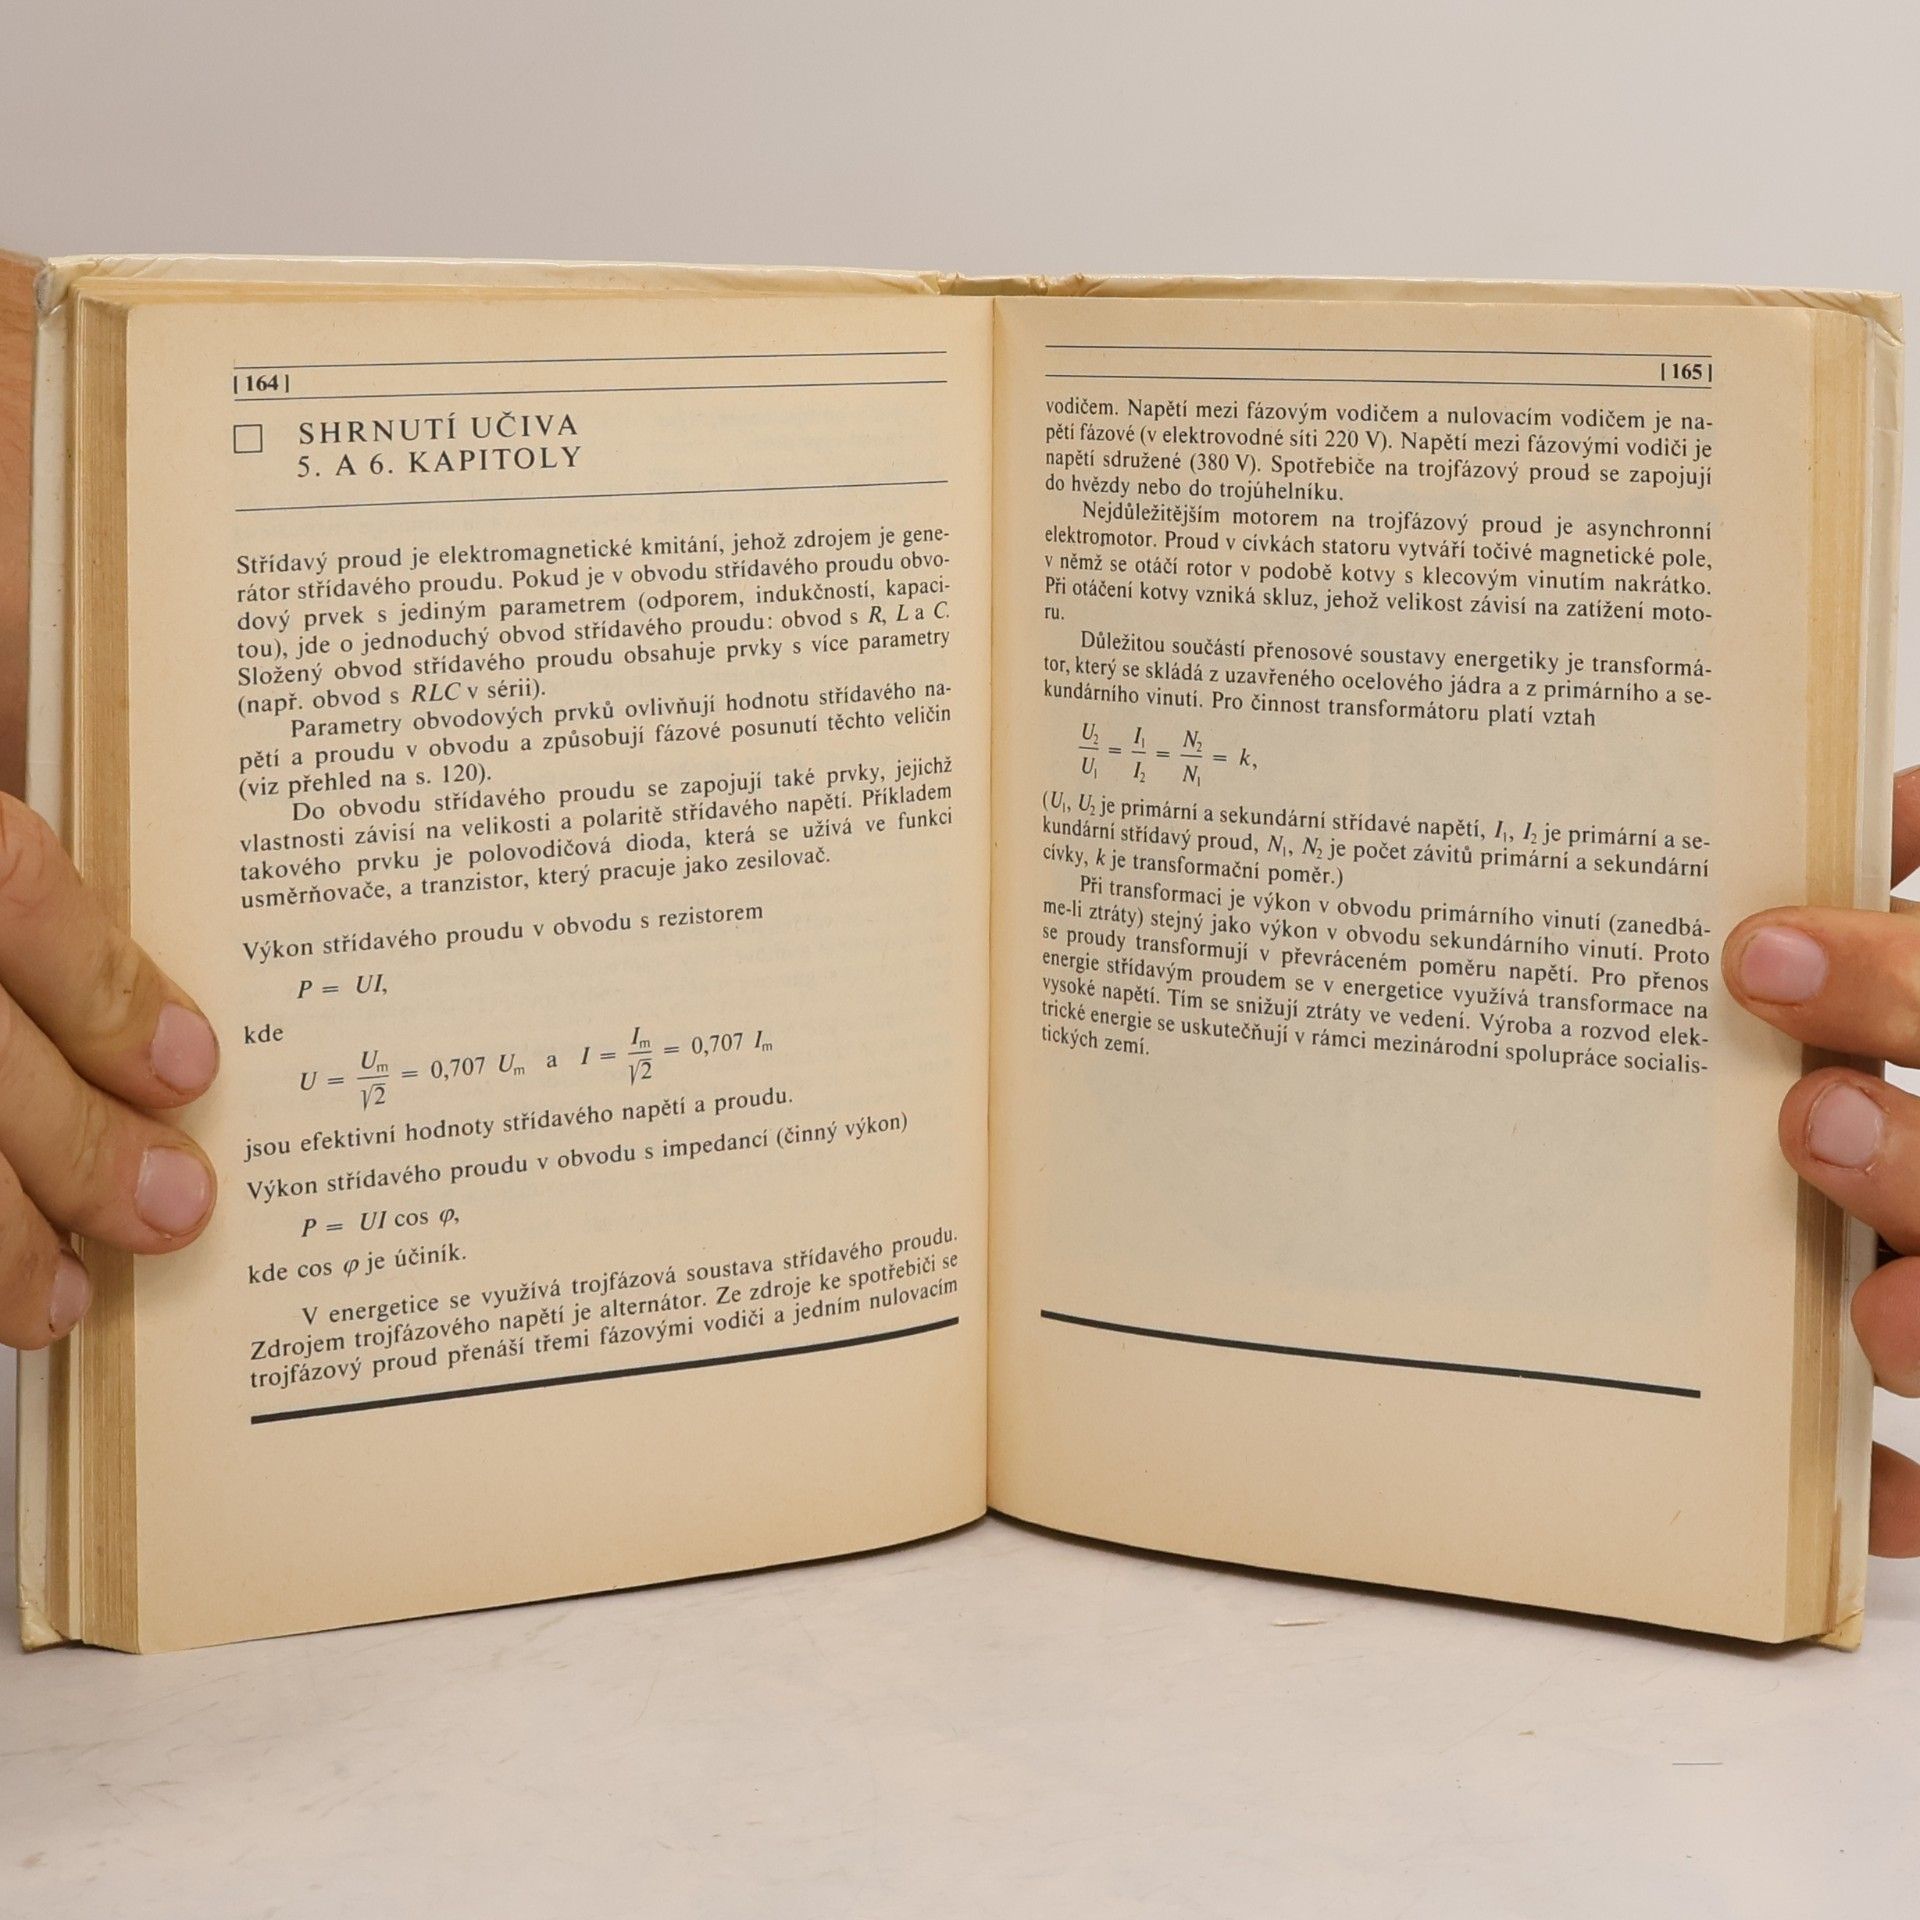 [ 164 ]
SHRNUTÍ UČIVA
5. A 6. KAPITOLY
Střídavý proud je elektromagnetické kmitání, jehož zdrojem je gene-
rátor střídavého proudu. Pokud je v obvodu střídavého proudu obvo-
dový prvek s jediným parametrem (odporem, indukčností, kapaci-
tou), jde o jednoduchý obvod střídavého proudu: obvod s R, L a C.
Složený obvod střídavého proudu obsahuje prvky s více parametry
(např. obvod s RLC v sérii).
Parametry obvodových prvků ovlivňují hodnotu střídavého na-
pětí a proudu v obvodu a způsobují fázové posunutí těchto veličin
(viz přehled na s. 120).
Do obvodu střídavého proudu se zapojují také prvky, jejichž
vlastnosti závisí na velikosti a polaritě střídavého napětí. Příkladem
takového prvku je polovodičová dioda, která se užívá ve funkci
usměrňovače, a tranzistor, který pracuje jako zesilovač.
Výkon střídavého proudu v obvodu s rezistorem
P = UI,
kde
U = Um/√2 = 0,707 Um a I = Im/√2 = 0,707 Im
jsou efektivní hodnoty střídavého napětí a proudu.
Výkon střídavého proudu v obvodu s impedancí (činný výkon)
P = UI cos φ,
kde cos φ je účiník.
V energetice se využívá trojfázová soustava střídavého proudu.
Zdrojem trojfázového napětí je alternátor. Ze zdroje ke spotřebiči se
trojfázový proud přenáší třemi fázovými vodiči a jedním nulovacím
[ 165 ]
vodičem. Napětí mezi fázovým vodičem a nulovacím vodičem je na-
pětí fázové (v elektrovodné síti 220 V). Napětí mezi fázovými vodiči je
napětí sdružené (380 V). Spotřebiče na trojfázový proud se zapojují
do hvězdy nebo do trojúhelníku.
Nejdůležitějším motorem na trojfázový proud je asynchronní
elektromotor. Proud v cívkách statoru vytváří točivé magnetické pole,
v němž se otáčí rotor v podobě kotvy s klecovým vinutím nakrátko.
Při otáčení kotvy vzniká skluz, jehož velikost závisí na zatížení moto-
ru.
Důležitou součástí přenosové soustavy energetiky je transformá-
tor, který se skládá z uzavřeného ocelového jádra a z primárního a se-
kundárního vinutí. Pro činnost transformátoru platí vztah
U₂/U₁ = I₁/I₂ = N₂/N₁ = k,
(U₁, U₂ je primární a sekundární střídavé napětí, I₁, I₂ je primární a se-
kundární střídavý proud, N₁, N₂ je počet závitů primární a sekundární
cívky, k je transformační poměr.)
Při transformaci je výkon v obvodu primárního vinutí (zanedbá-
me-li ztráty) stejný jako výkon v obvodu sekundárního vinutí. Proto
se proudy transformují v převráceném poměru napětí. Pro přenos
energie střídavým proudem se v energetice využívá transformace na
vysoké napětí. Tím se snižují ztráty ve vedení. Výroba a rozvod elek-
trické energie se uskutečňují v rámci mezinárodní spolupráce socialis-
tických zemí.